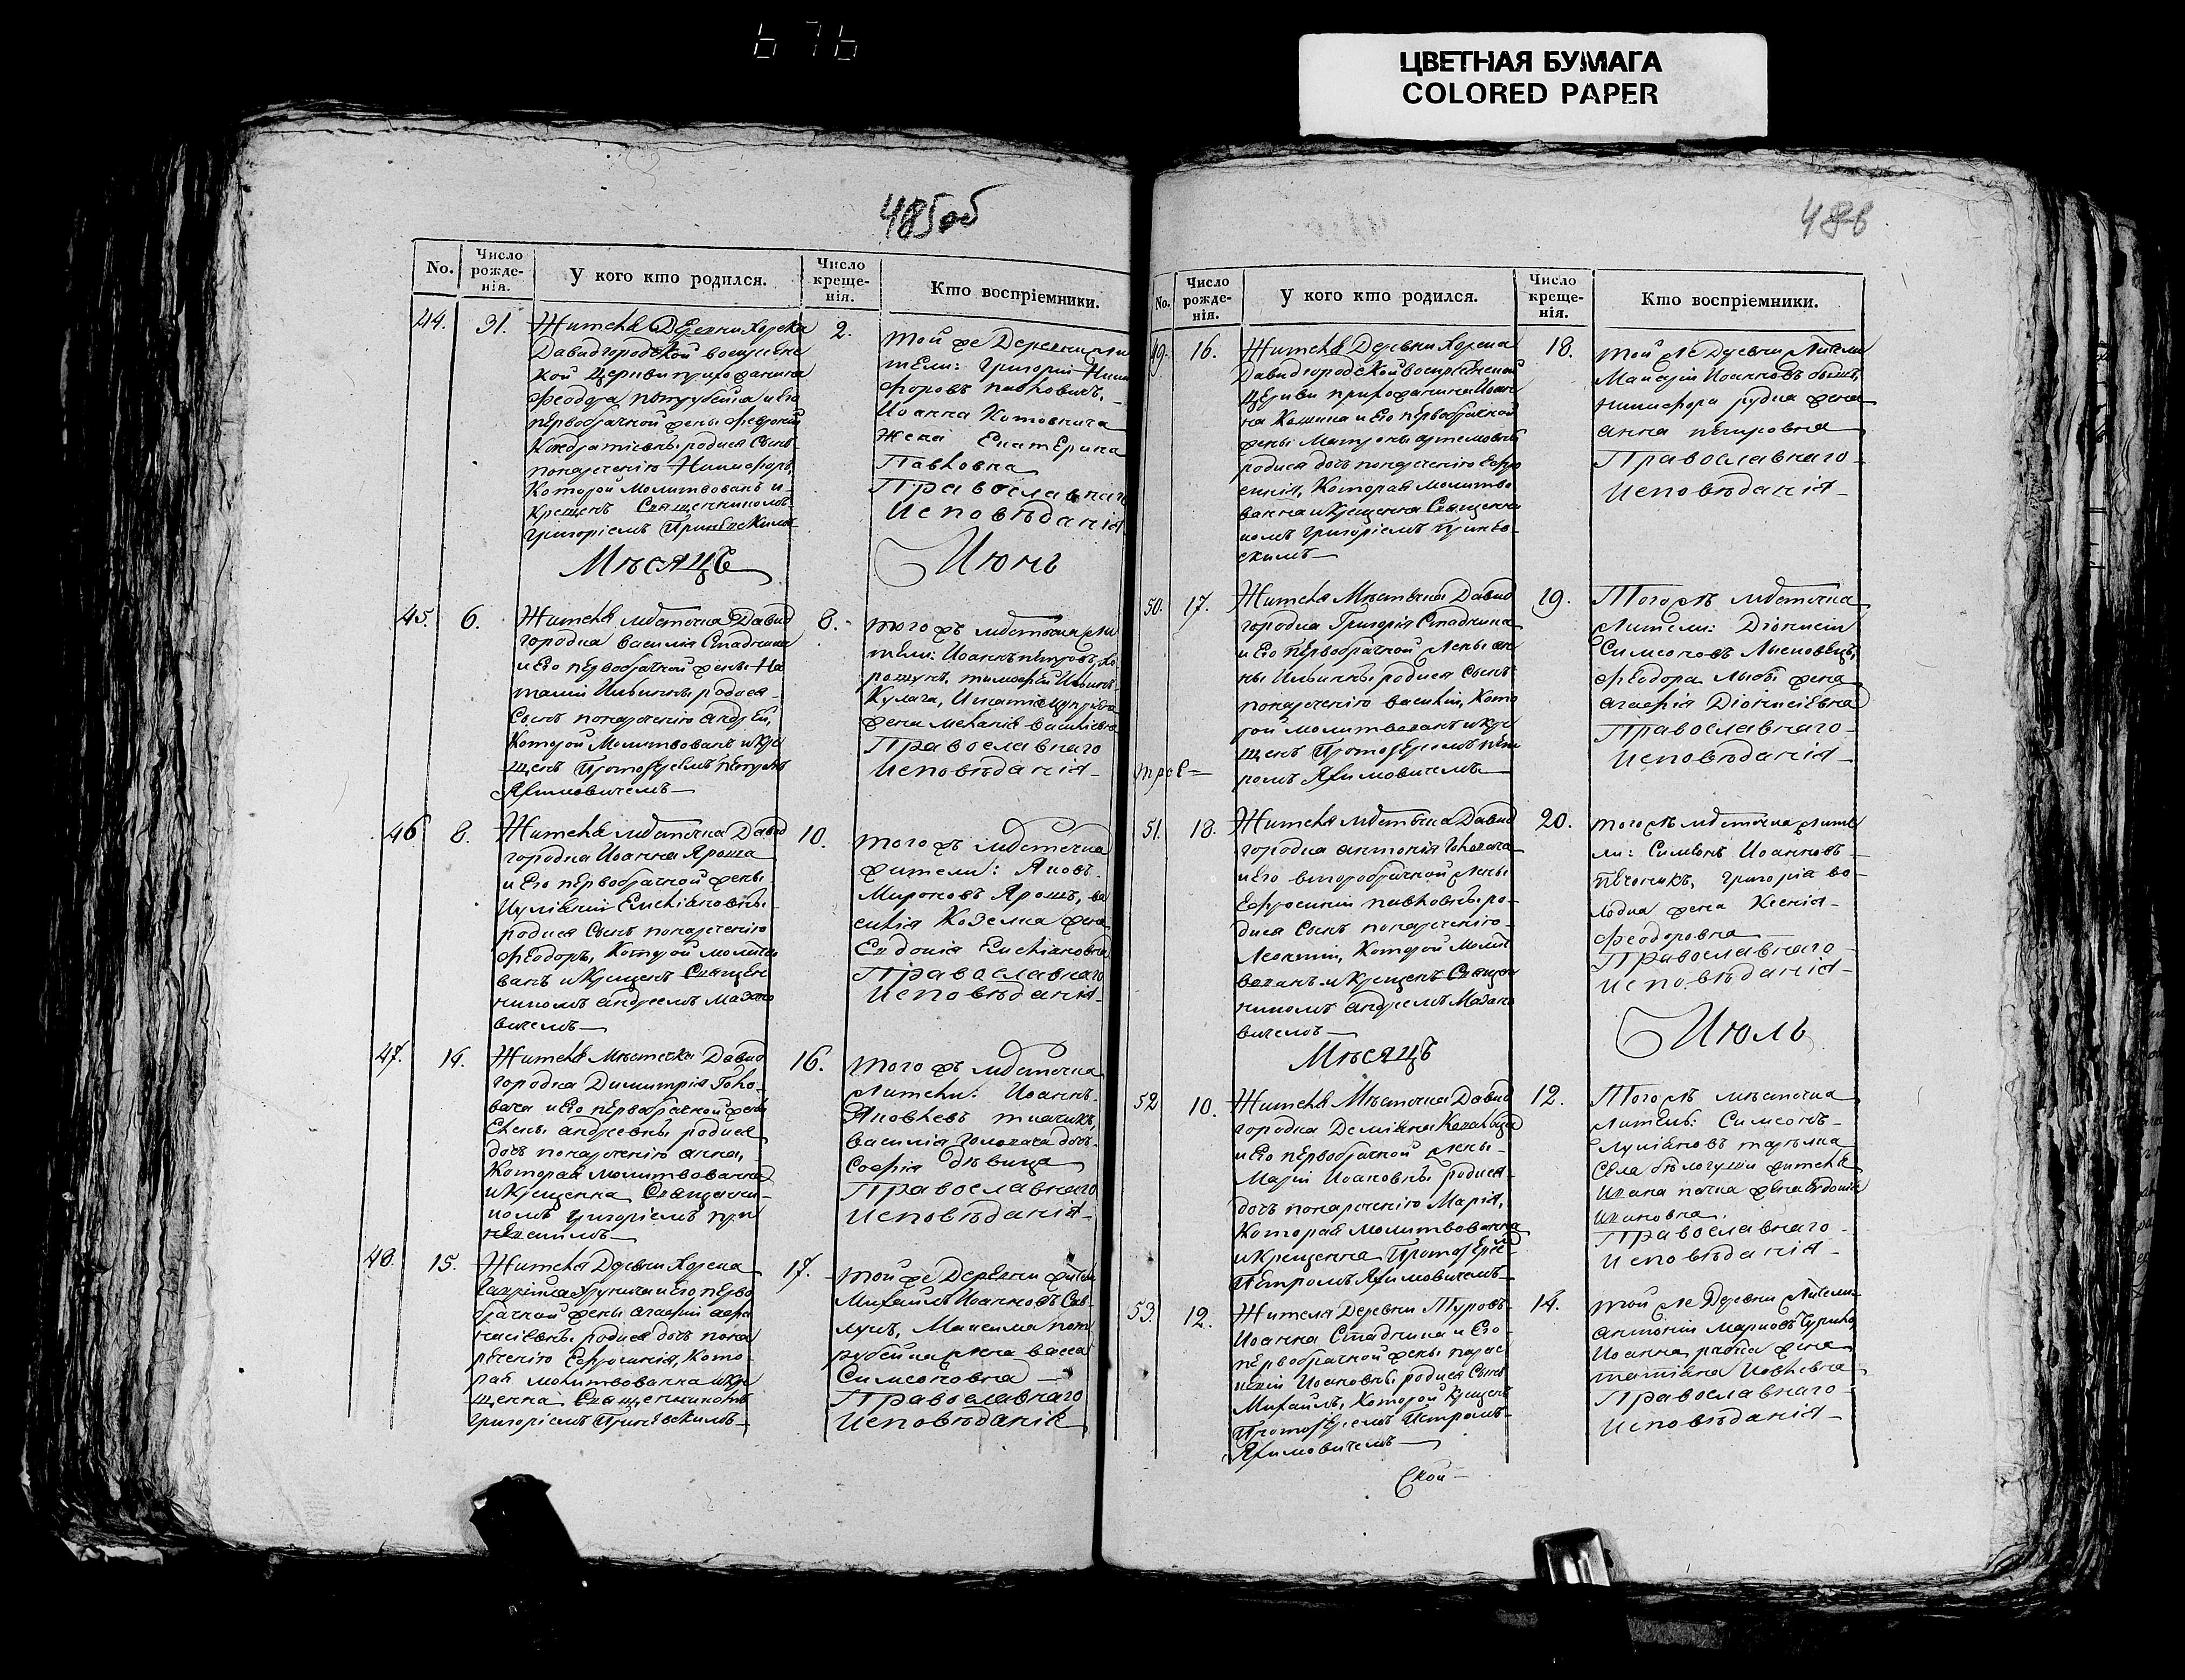 676
ЦВЕТНАЯ БУМАГА
COLORED PAPER
485об
486
No.
Число рожде-нія.
У кого кто родился.
Число креще-нія.
Кто воспріемники.
44.
31.
Жителя Деревни Хорска
Давидгородской воскресенс
кой Церкви прихожанина
Феодора и Его
первобрачной жены Февроніи
Кондратіевны родися Сынъ
понареченію Никифоръ,
Которой Молитвованъ и
крещенъ Священникомъ
Григоріемъ
2.
той же Деревни жи
тели: Григорій Ники
форовъ Павковичъ,
Иоанна Котовича
Жена Екатерина
Павловна
Православнаго
Исповѣданія
Мѣсяцъ
Июнь
45.
6.
Жителя мѣстечка Давид
городка Василія Стадника
и Его первобрачной жены На
таліи Ильины родися
Сынъ понареченію Андрей,
Которой Молитвованъ и кре
щенъ Протоіереемъ Петромъ
Якимовичемъ
8.
того жъ мѣстечка жи
тели: Иоаннъ Петровъ
Тимофей Ильинъ
Кулага, Игнатія
жена Меланія Васильевна
Православнаго
Исповѣданія
46
8.
Жителя мѣстечка Давид
городка Иоанна Яроша
и Его первобрачной жены
Иуліаніи Емеліановны
родися Сынъ понареченію
Феодоръ, Которой молитво
ванъ и Крещенъ Священ
никомъ Андреемъ Мазано
вичемъ
10.
того жъ мѣстечка
жители: Яковъ
Мироновъ Ярошъ, Ва
силія Козелка жена
Евдокія Емеліановна
Православнаго
Исповѣданія
47.
14.
Жителя Мѣстечка Давид
городка Димитрія Голо
вача и Его первобрачной жены
Елены Андреевны родися
дочь понареченію Анна,
Которая молитвованна
и Крещенна Священни
комъ Григоріемъ
16.
того жъ мѣстечка
жители: Иоаннъ
Яковлевъ
Василія Головача дочь
Софія дѣвица
Православнаго
Исповѣданія
48.
15.
Жителя Деревни Хорска
и Его перво
брачной жены Агафіи Афа
насіевны родися дочь пона
реченію Ефросинія, Кото
рая молитвованна и кре
щенна Священникомъ
Григоріемъ
17.
той же Деревни жители
Михаилъ Иоанновъ Сав
лукъ, Максима
жена Васса
Симеоновна
Православнаго
Исповѣданія
No.
Число рожде-нія.
У кого кто родился.
Число креще-нія.
Кто воспріемники.
49.
16.
Жителя Деревни Хорска
Давидгородской воскресенской
Церкви прихожанина Иоан
на и Его первобрачной
жены Матроны Артемовны
родися дочь понареченію Ефро
синія, Которая молитво
ванна и Крещенна Священни
комъ Григоріемъ
18.
той же Деревни Жители
Максимъ Иоанновъ
Никифора жена
Анна Петровна
Православнаго
Исповѣданія
50.
17.
Жителя Мѣстечка Давид
городка Григорія Стадника
и Его первобрачной жены Ан
ны Ильины родися Сынъ
понареченію Василій, Кото
рой молитвованъ и Кре
щенъ Протоіереемъ Пет
ромъ Якимовичемъ
19.
Того жъ мѣстечка
Жители: Діонисій
Симеоновъ Лисковецъ,
Феодора жена
Агафія Діонисіевна
Православнаго
Исповѣданія
51.
18.
Жителя мѣстечка Давид
городка Антонія Головача
и Его второбрачной жены
Ефросиніи Павловны ро
дися Сынъ понареченію
Леонтій, Которой молит
вованъ и Крещенъ Священ
никомъ Андреемъ Мазано
вичемъ
20.
того жъ мѣстечка жите
ли: Симеонъ Иоанновъ
Григорія Во
лодка жена Ксенія
Феодоровна
Православнаго
Исповѣданія
Мѣсяцъ
Июль
52
10.
Жителя Мѣстечка Давид
городка Даміана
и Его первобрачной жены
Маріи Иоановны родися
дочь понареченію Марія,
Которая молитвованна
и Крещенна Протоіерее
Петромъ Якимовичемъ
12.
Того жъ мѣстечка
Житель: Симеонъ
Села жителя
Ивана жена Евдокія
Ивановна
Православнаго
Исповѣданія
53.
12.
Жителя Деревни Туровъ
Иоанна Стадника и Его
первобрачной жены Парас
кевіи Иоановны родися Сынъ
Михаилъ, Которой Крещенъ
Протоіереемъ Петромъ
Якимовичемъ
14.
той же Деревни Жители
Антоній Марковъ
Иоанна жена
Татіана Иовлевна
Православнаго
Исповѣданія
Ской